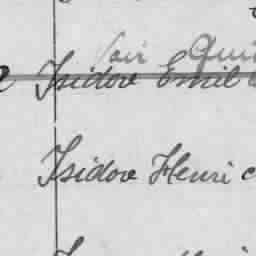 Voir
Isidore Emil
Isidore Henri